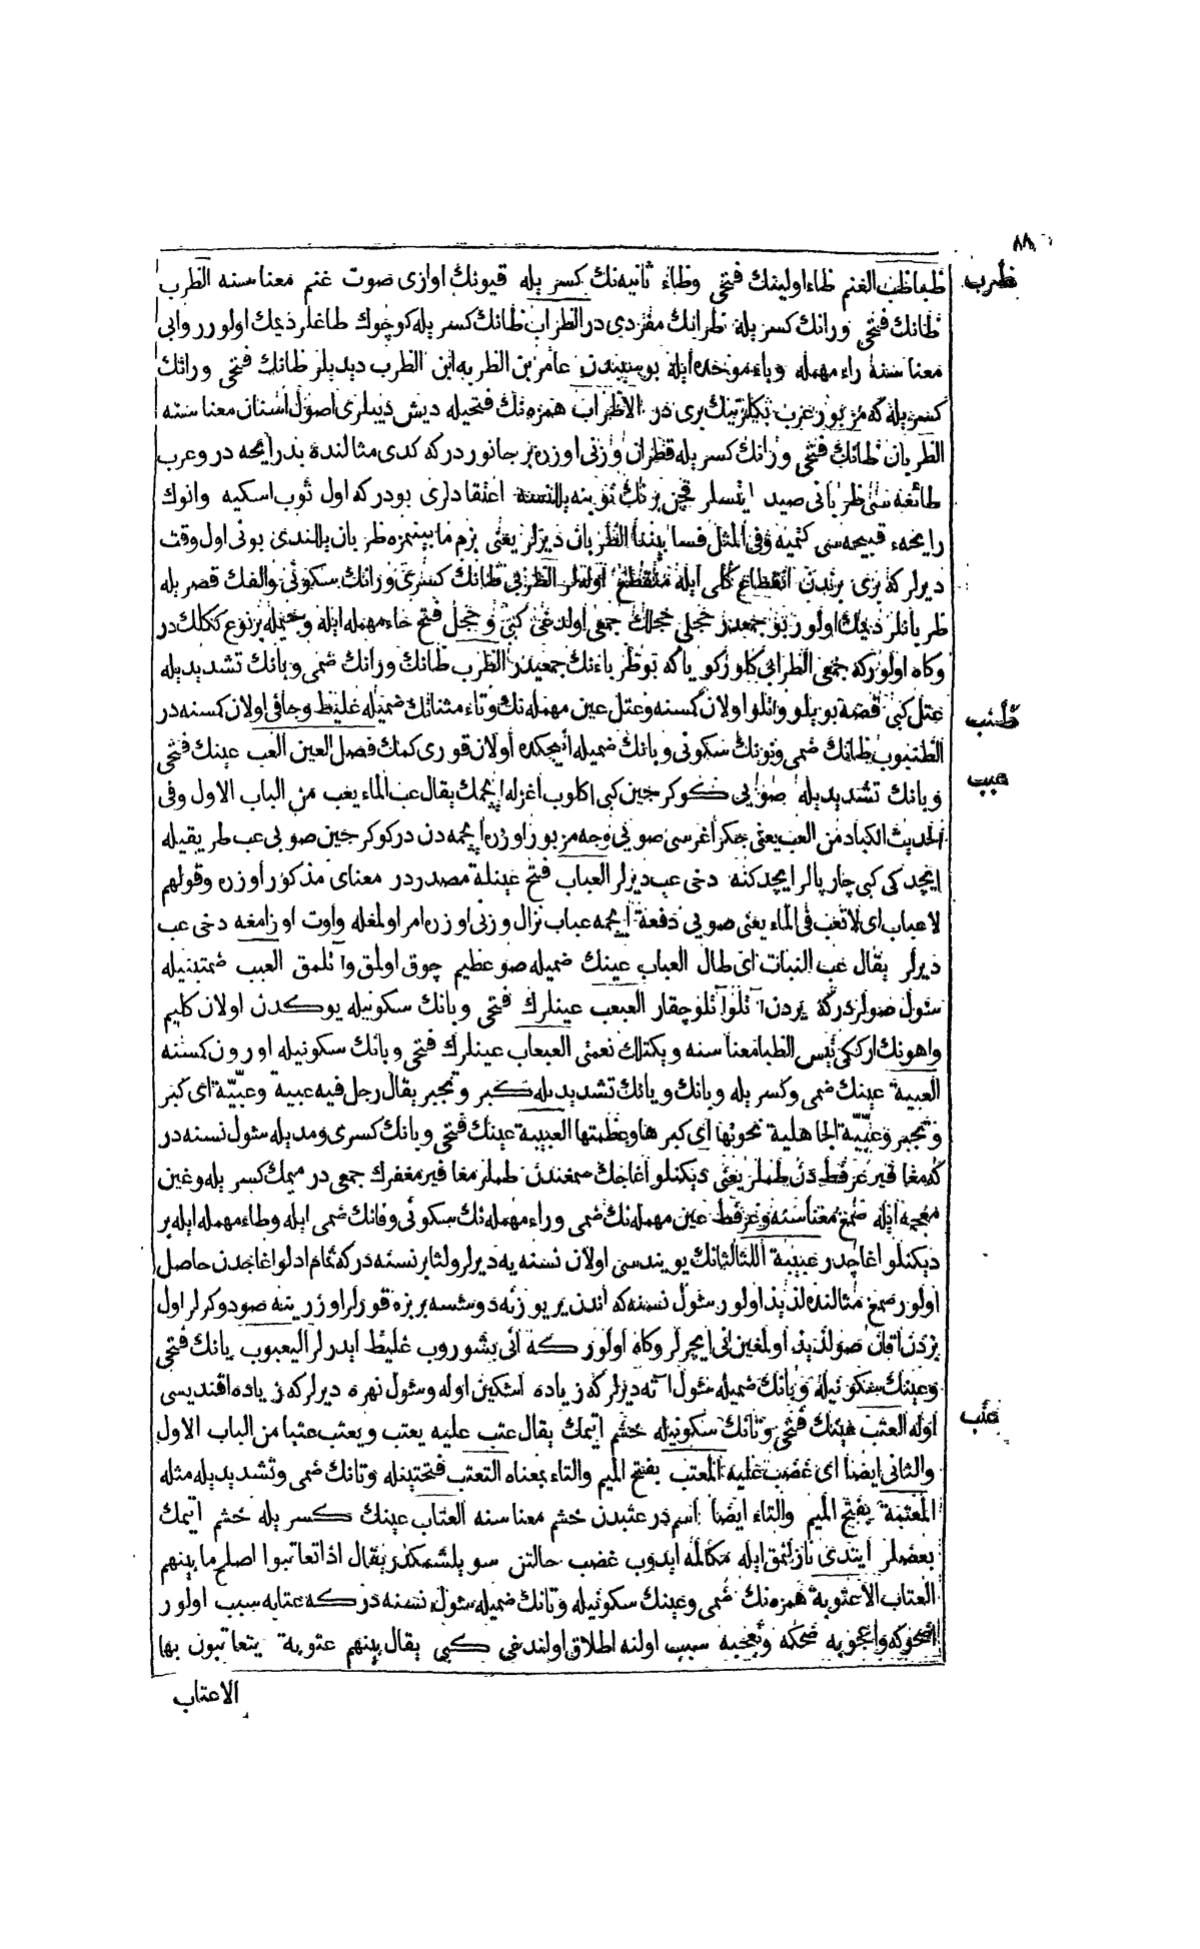 ٨٨
ظبظاب الغنم ظاء اولينك فتحى وظاء ثانيه نك كسريله قيونك اوازى صوت غنم معناسنه الظرب
ظرب
ظانك فتحى ورانك كسريله ظرابك مفردى در الظراب ظانك كسريله كوچوك طاغلر ديمك اولور روابى
معناسنه راء مهمله وباء موحده ايله بوسببدن عامر بن الظربه ابن الظرب ديديلر ظانك فتحى ورانك
كسريله كه مزبور عرب بكلرينك برى در الاظراب همزه نك فتحيله ديش ديبلرى اصول اسنان معناسنه
الظربان ظانك فتحى ورانك كسريله قطران وزنى اوزره بر جانور در كه كدى مثالنده بد رايحه در وعرب
طائفه سى ظربانى صيد ايتسلر قچن برنك ثوبنه يللنسه اعتقادلرى بودر كه اول ثوب اسكيه وانوك
رايحهء قبيحه سى كتميه وفى المثل فسا بيننا الظربان ديرلر يعنى بزم مابينمزه ظربان يللندى بونى اول وقت
ديرلر كه برى برندن انقطاع كلى ايله منقطع اوله لر الظربى ظانك كسرى ورانك سكونى والفك قصريله
ظربانلر ديمك اولور بو جمعدر حجلى حجلك جمعى اولدغى كبى وحجل فتح حاء مهمله ايله وجيمله بر نوع ككلك در
وكاه اولور كه جمعى الظرابى كلور كويا كه بو ظرباءنك جمعيدر الظرب ظانك ورانك ضمى وبانك تشديديله
عتل كبى قصه بويلو واتلو اولان كسنه وعتل عين مهمله نك وتاء مثناتك ضميله غليظ وجافى اولان كسنه در
ظنب
الظنبوب ظانك ضمى ونونك سكونى وبانك ضميله انجكده اولان قورى كمك فصل العين العب عينك فتحى
عبب
وبانك تشديديله صوئى كوكرجين كبى اكلوب اغزله ايچمك يقال عب الماء يعب من الباب الاول وفى
الحديث الكباد من العب يعنى جكر اغرسى صوئى وجه مزبور اوزره ايچمه دن در كوكرجين صوئى عب طريقيله
ايچد كى كبى چارپالر ايچد كنه دخى عب ديرلر العباب فتح عينله مصدردر معناى مذكور اوزره وقولهم
لا عباب اى لا تعب فى الماء يعنى صوئى دفعة ايچمه عباب نزال وزنى اوزره امر اولمغله واوت اوزامغه دخى عب
ديرلر يقال عب النبات اى طال العباب عينك ضميله صو عظيم چوق اولمق وآتلمق العبب ضمتينيله
شول صولردر كه يردن آتلو آتلو چقار العبعب عينلرك فتحى وبانك سكونيله يوكدن اولان كليم
واهونك ارككى تيس الظبا معناسنه ويكتلك نعمتى العبعاب عينلرك فتحى وبانك سكونيله اورون كسنه
العبية عينك ضمى وكسريله وبانك ويانك تشديديله كبر وتجبر يقال رجل فيه عبية وعبيّة اى كبر
وتجبر وعبيّة الجاهلية نخوتها اى كبرها وعظمتها العبيبة عينك فتحى وبانك كسرى ومديله شول نسنه در
كه مغافير عرفطدن طملر يعنى ديكنلو اغاجك صمغندن طملر مغافير مغفرك جمعى در ميمك كسريله وغين
معجمه ايله صمغ معناسنه وعرفط عين مهمله نك ضمى وراء مهمله نك سكونى وفانك ضمى ايله وطاء مهمله ايله بر
ديكنلو اغاچدر عبيبة اللثا لثانك يويندسى اولان نسنه يه ديرلر ولثا بر نسنه در كه ثمام ادلو اغاجدن حاصل
اولور صمغ مثالنده لذيذ اولور شول نسنه كه اندن ير يوزنه دوشسه بر بزه قورلر اوزرينه صو دوكرلر اول
بزدن اقان صو لذيذ اولمغين انى ايچرلر وكاه اولور كه انى بشوروب غليظ ايدرلر اليعبوب يانك فتحى
وعينك سكونيله وبانك ضميله شول آته ديرلر كه زياده اشكين اوله وشول نهره ديرلر كه زياده اقنديسى
عتب
اوله العتب عينك فتحى وتانك سكونيله خشم ايتمك يقال عتب عليه يعتب ويعتب عتبا من الباب الاول
والثانى ايضا اى غضب عليه المعتب بفتح الميم والتاء بمعناه التعتب فتحتينله وتانك ضمى وتشديديله مثله
المعتبة بفتح الميم والتاء ايضا اسم در عتبدن خشم معناسنه العتاب عينك كسريله خشم ايتمك
بعضلر ايتدى نازلنمق ايله مكالمه ايدوب غضب حالتن سويلشمكدر يقال اذا تعاتبوا اصلح ما بينهم
العتاب الاعتوبة همزه نك ضمى وعينك سكونيله وتانك ضميله شول نسنه در كه عتابه سبب اولور
اضحوكه واعجوبه ضحكه وتعجبه سبب اولنه اطلاق اولندغى كبى يقال بينهم عتوبة يتعاتبون بها
الاعتاب